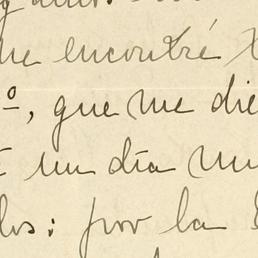 me encontré
º, que me die
un día mu
los: por la